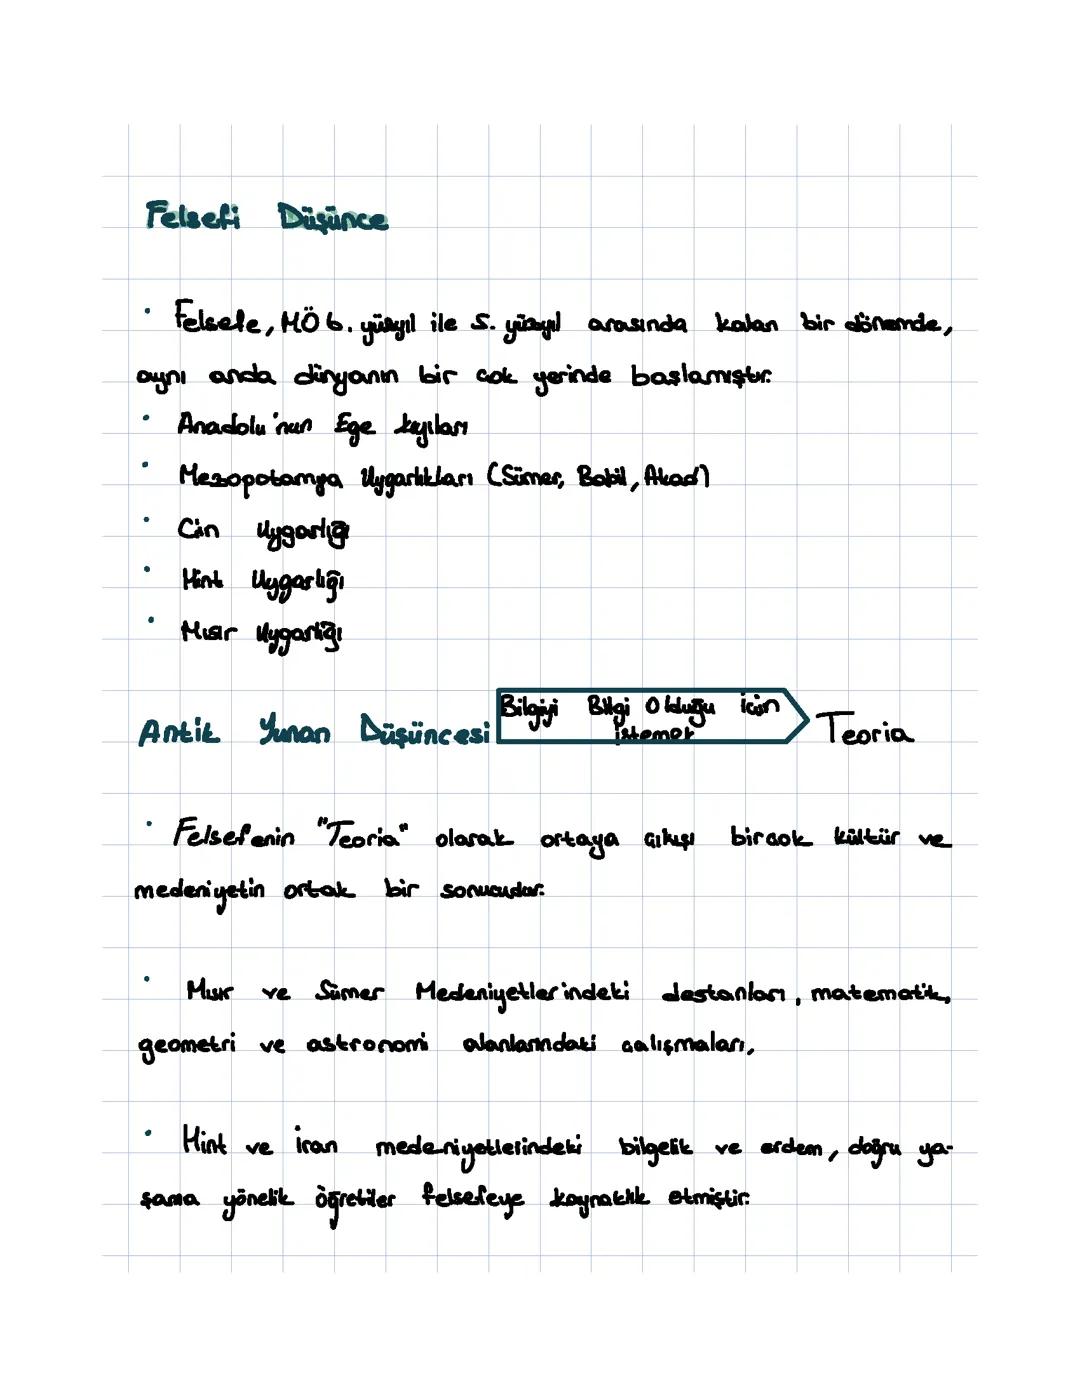 Felsefi Düşünce
• Felsefe, MÖ 6. yüzyıl ile 5. yüzyıl arasında kalan bir dönemde,
aynı anda dünyanın bir cok yerinde başlamıştır.
• Anadolu'nun Ege kıyıları
• Mezopotamya Uygarlıkları (Sümer, Babil, Akad)
• Cin Uygarlığı
• Hint Uygarlığı
• Mısır Uygarlığı
Antik Yunan Düşüncesi
Bilgiyi Bilgi Olduğu icin
istemek
Teoria
• Felsefenin "Teoria" olarak ortaya çıkışı bircok kültür ve
medeniyetin ortak bir sonucudur.
• Mısır ve Sümer Medeniyetlerindeki destanları, matematik,
geometri ve astronomi alanlarındaki çalışmaları,
• Hint ve iran medeniyetlerindeki bilgelik ve erdem, doğru ya-
şama yönelik öğretiler felsefeye kaynaklık etmiştir.